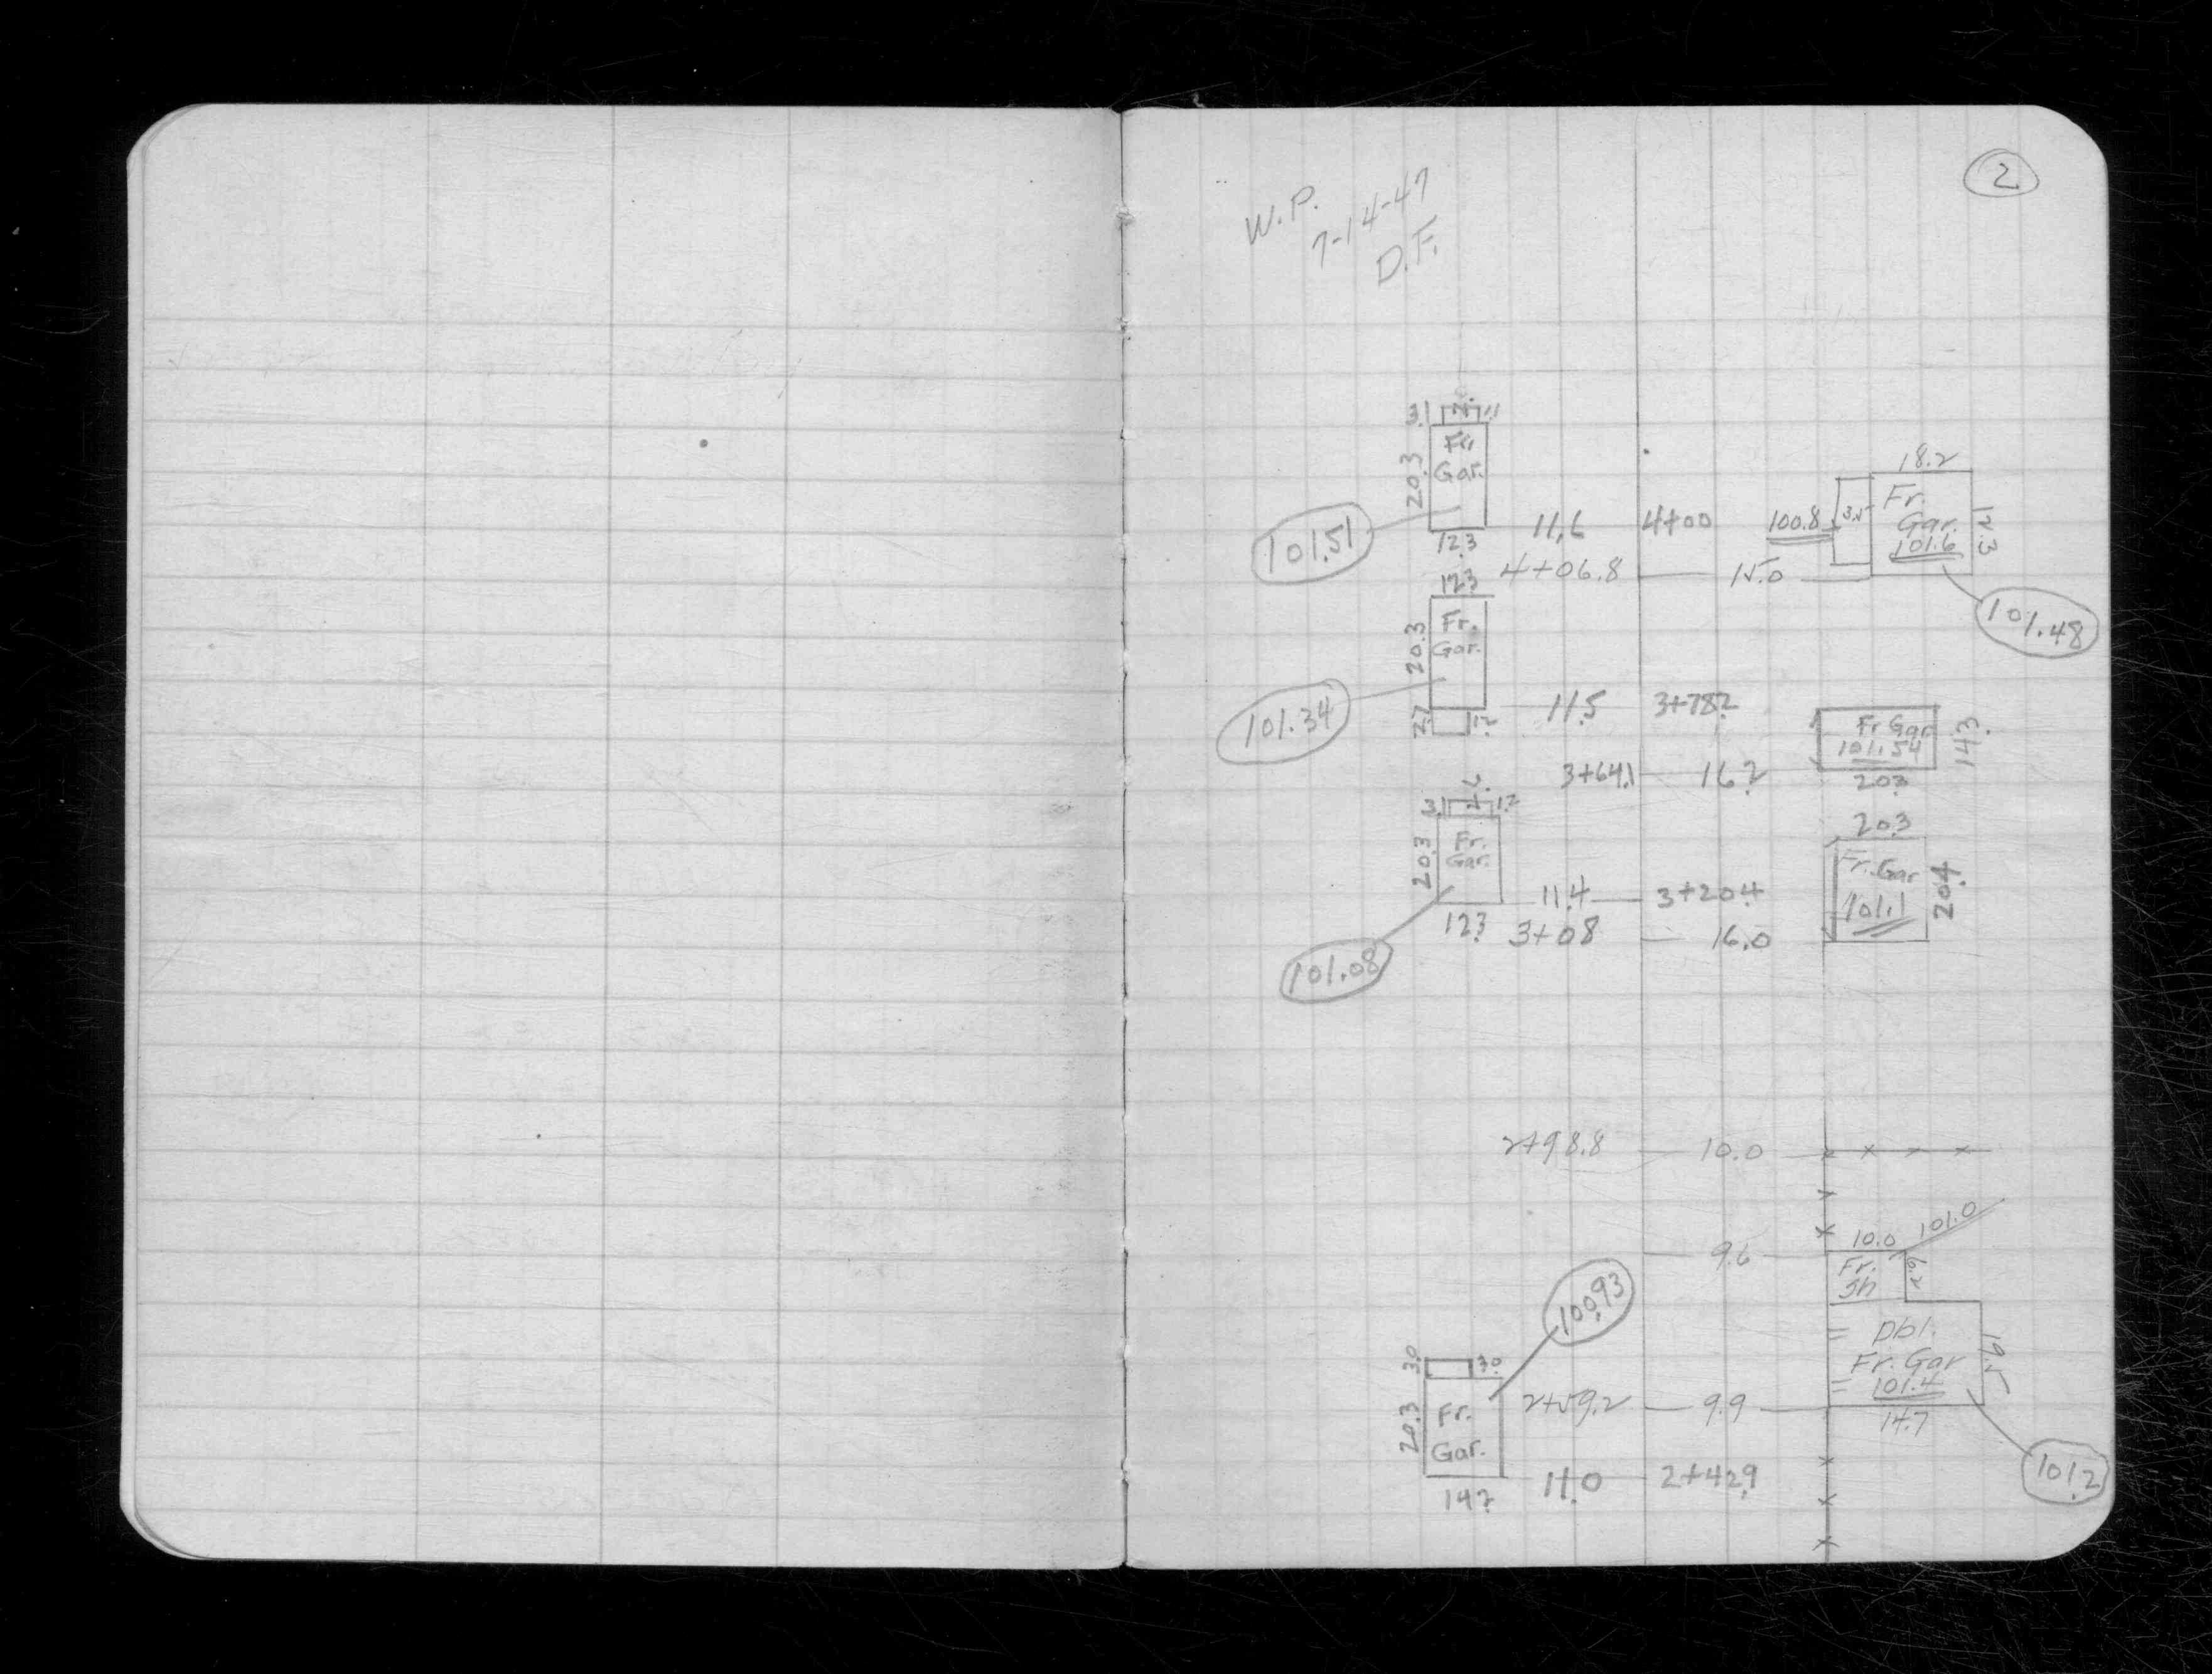 2
W.P.
7-14-47
D.F.
3.1 1.1
Fr.
Gar.
20.3
101.51
12.3
11.6 4+00 100.8
18.2
Fr.
Gar.
101.6
12.3
4+06.8 15.0
101.48
12.3
Fr.
Gar.
20.3
101.34
11.5 3+78.2
2.7 1.2
Fr Gar
101.54
14.3
20.3
3+64.1 16.2
3.1 1.2
Fr.
Gar.
20.3
11.4 3+20.4
12.3
101.08
20.3
Fr. Gar
101.1
20.4
3+08 16.0
2+98.8 10.0
9.6
10.0 101.0
Fr.
Sh
9.2
Dbl.
Fr. Gar
101.4
19.5
14.7
101.2
100.93
3.0 3.0
Fr.
Gar.
20.3
2+59.2 9.9
14.2
11.0 2+42.9